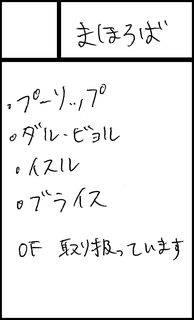 まほろば
・プーリップ
・ダル・ビョル
・イスル
・ブライス
OF 取り扱っています